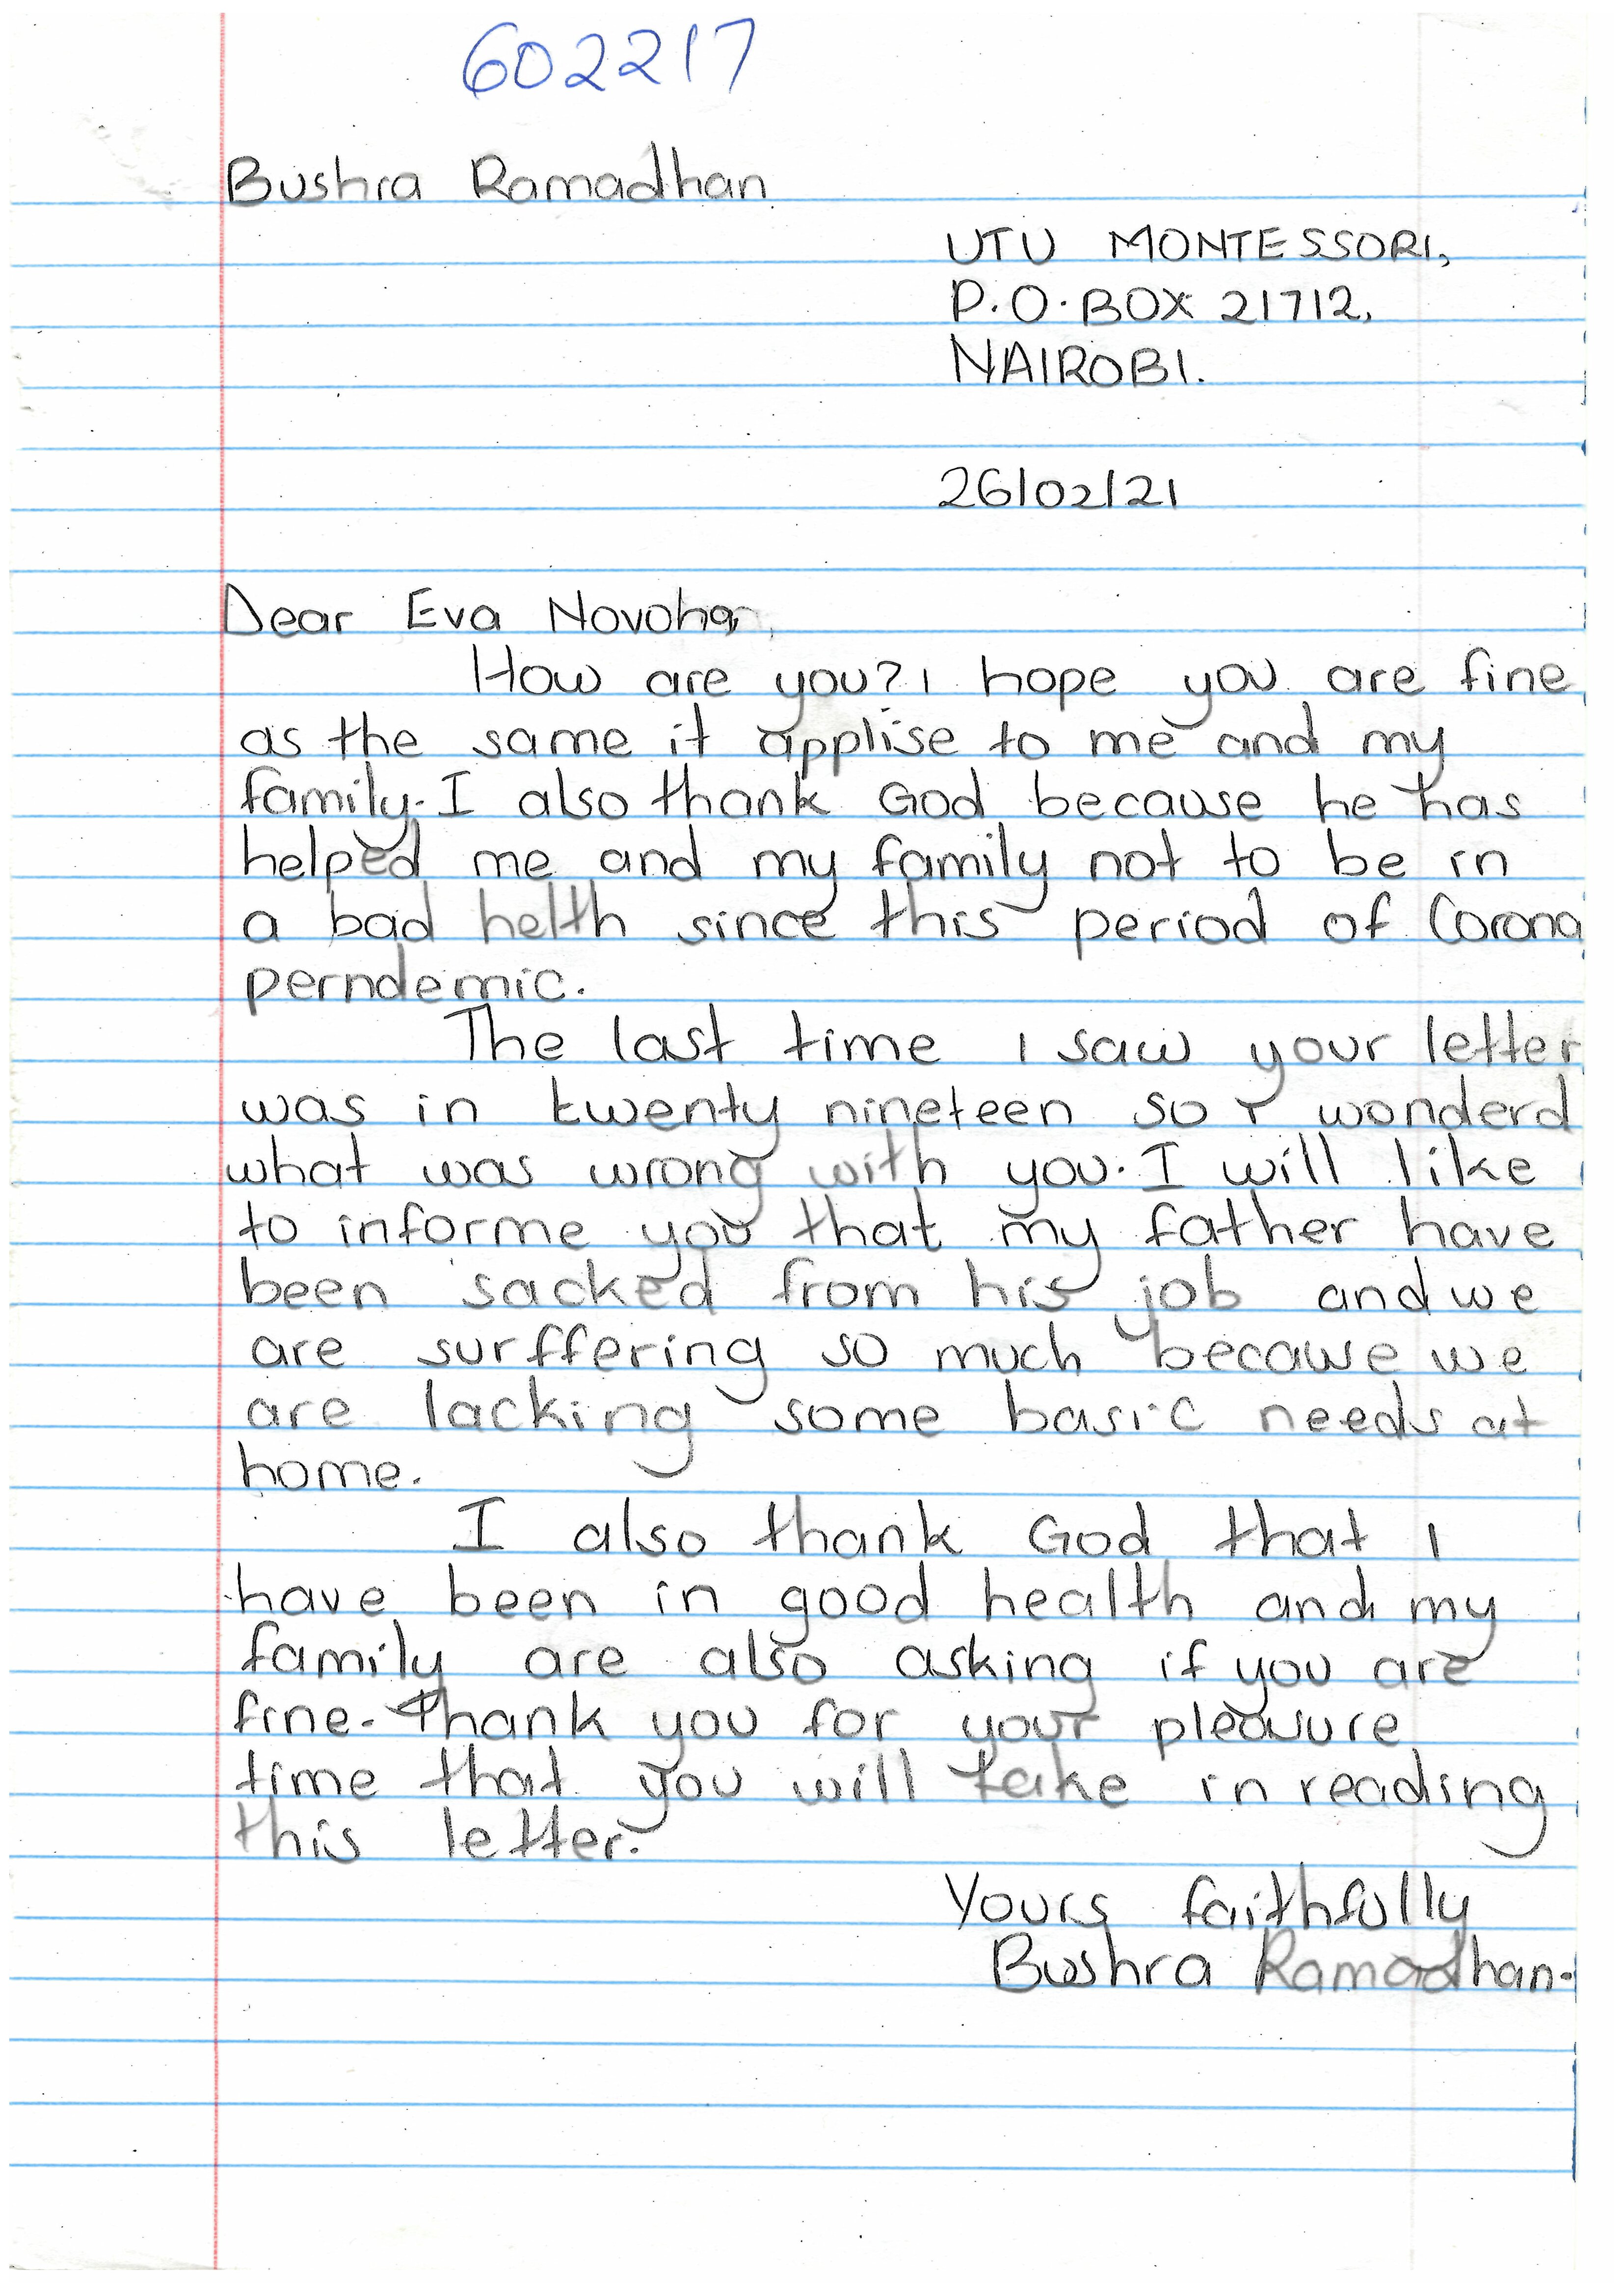 602217
Bushra Ramadhan
UTU MONTESSORI,
P.O. BOX 21712,
NAIROBI.
26/02/21
Dear Eva
How are you? I hope you are fine
as the same it applise to me and my
family. I also thank God because he has
helped me and my family not to be in
a bad helth since this period of Corona
perndemic.
The last time I saw your letter
was in twenty nineteen so I wonderd
what was wrong with you. I will like
to informe you that my father have
been sacked from his job and we
are surffering so much because we
are lacking some basic needs at
home.
I also thank God that I
have been in good health and my
family are also asking if you are
fine. Thank you for your pleasure
time that you will take in reading
this letter.
Yours faithfully
Bushra Ramadhan.